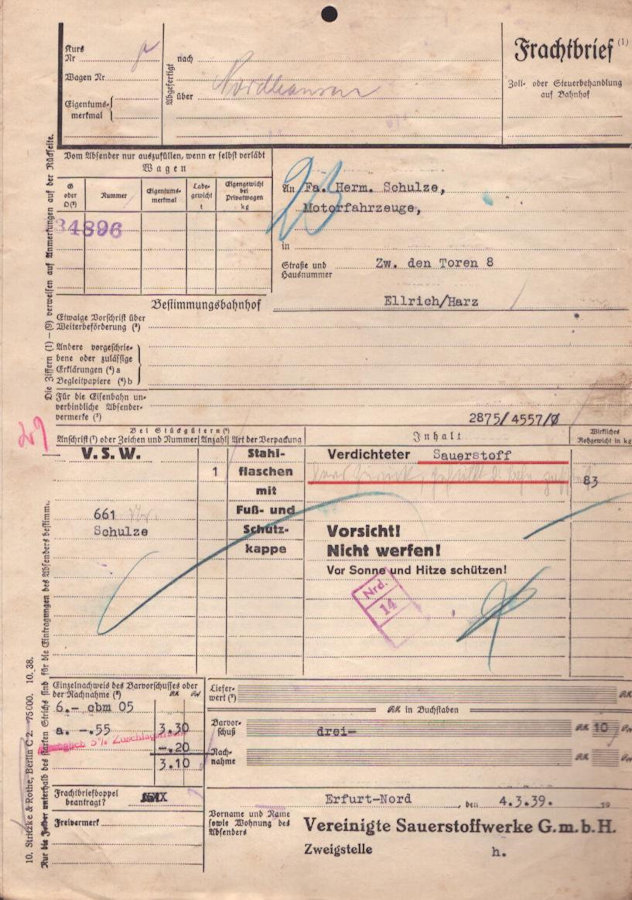 Kurs
Nr
Wagen Nr
Eigentums-
merkmal
Abgefertigt
nach
über
Nordhausen
Frachtbrief (1)
Zoll- oder Steuerbehandlung
auf Bahnhof
Vom Absender nur auszufüllen, wenn er selbst verlädt
Wagen
G
oder
O(²)
Nummer
Eigentums-
merkmal
Lade-
gewicht
t
Eigengewicht
bei
Privatwagen
kg
34896
23
An Fa. Herm. Schulze,
Motorfahrzeuge,
in
Straße und
Hausnummer
Zw. den Toren 8
Ellrich/Harz
Bestimmungsbahnhof
Etwaige Vorschrift über
Weiterbeförderung (³)
Andere vorgeschrie-
bene oder zulässige
Erklärungen (⁴) a
Begleitpapiere (⁴) b
Für die Eisenbahn un-
verbindliche Absender-
vermerke (⁵)
2875/4557/
Die Ziffern (1) – (9) verweisen auf Anmerkungen auf der Rückseite.
Bei Stückgütern (⁶)
Anschrift (⁷) oder Zeichen und Nummer
Anzahl
Art der Verpackung
Inhalt
Wirkliches
Rohgewicht in kg
V.S.W.
1
Stahl-
flaschen
mit
Fuß- und
Schutz-
kappe
Verdichteter Sauerstoff
83
661
Schulze
Vorsicht!
Nicht werfen!
Vor Sonne und Hitze schützen!
Nrd.
14
Einzelnachweis des Barvorschusses oder
der Nachnahme (⁸)
RM
Rpf
6.- cbm 05
a. -.55
3.30
-.20
3.10
5% Zuschlag
Liefer-
wert (⁹)
RM in Buchstaben
Barvor-
schuß
drei-
RM 10 Rpf
Nach-
nahme
RM
Rpf
Frachtbriefdoppel
beantragt?
Freivermerk
Erfurt-Nord, den 4.3.39. 19
Vorname und Name
sowie Wohnung des
Absenders
Vereinigte Sauerstoffwerke G.m.b.H.
Zweigstelle
h.
10. Stritzke & Rothe, Berlin C 2. 75000. 10. 38.
Nur die Felder unterhalb des starken Strichs sind für die Eintragungen des Absenders bestimmt.